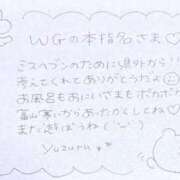 WGの本指名さま♡
ミスヘブンのために県外から!!
考えてくれてありがとうだよ☺
お風呂もおにいさまもポカポカ
富山寒いからあったかくしてね♡
また遊ぼうね(˙︶˙)
Yuzuru